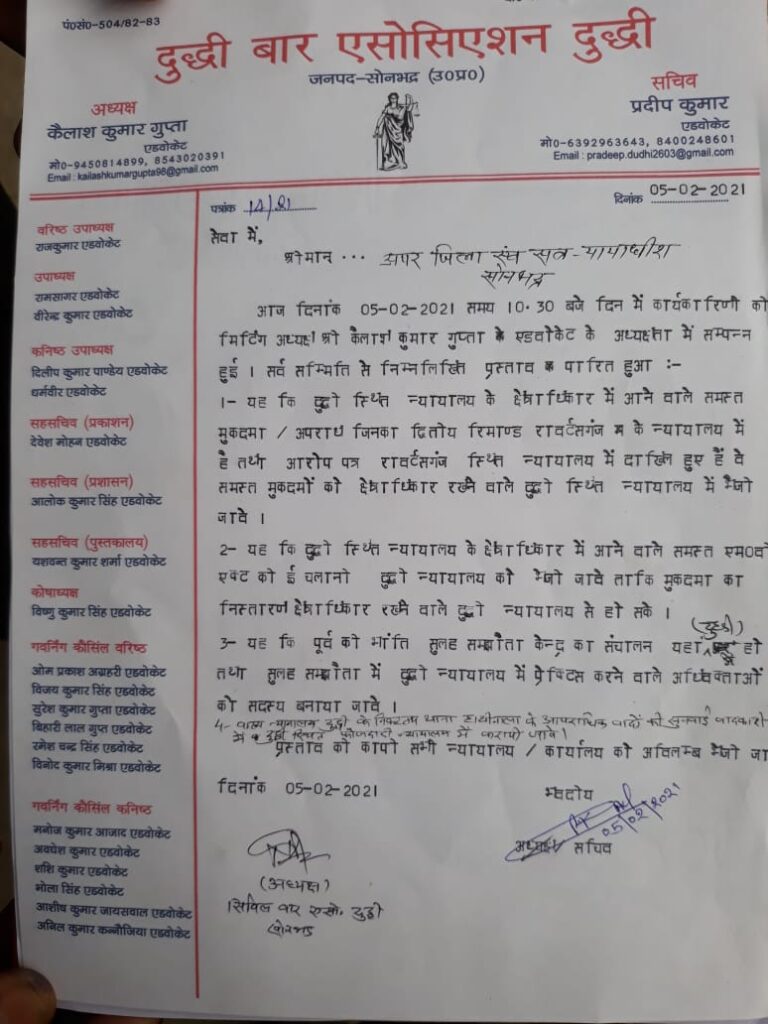 पं०सं०-504/82-83
दुद्धी बार एसोसिएशन दुद्धी
जनपद-सोनभद्र (उ०प्र०)
अध्यक्ष
कैलाश कुमार गुप्ता
एडवोकेट
मो०-9450814899, 8543020391
Email : kailashkumargupta98@gmail.com
सचिव
प्रदीप कुमार
एडवोकेट
मो०-6392963643, 8400248601
Email : pradeep.dudhi2603@gmail.com
वरिष्ठ उपाध्यक्ष
राजकुमार एडवोकेट
उपाध्यक्ष
रामसागर एडवोकेट
वीरेन्द्र कुमार एडवोकेट
कनिष्ठ उपाध्यक्ष
दिलीप कुमार पाण्डेय एडवोकेट
धर्मवीर एडवोकेट
सहसचिव (प्रकाशन)
देवेश मोहन एडवोकेट
सहसचिव (प्रशासन)
आलोक कुमार सिंह एडवोकेट
सहसचिव (पुस्तकालय)
यशवन्त कुमार शर्मा एडवोकेट
कोषाध्यक्ष
विष्णु कुमार सिंह एडवोकेट
गवर्निंग कौसिंल वरिष्ठ
ओम प्रकाश अग्रहरी एडवोकेट
विजय कुमार सिंह एडवोकेट
सुरेश कुमार गुप्ता एडवोकेट
बिहारी लाल गुप्त एडवोकेट
रमेश चन्द्र सिंह एडवोकेट
विनोद कुमार मिश्रा एडवोकेट
गवर्निंग कौसिंल कनिष्ठ
मनोज कुमार आजाद एडवोकेट
अवधेश कुमार एडवोकेट
शशि कुमार एडवोकेट
भोला सिंह एडवोकेट
आशीष कुमार जायसवाल एडवोकेट
अनिल कुमार कन्नौजिया एडवोकेट
पत्रांक 14/21
दिनांक 05-02-2021
सेवा में,
श्रीमान ... अपर जिला एवं सत्र न्यायाधीश
सोनभद्र
आज दिनांक 05-02-2021 समय 10.30 बजे दिन में कार्यकारिणी की
मिटिंग अध्यक्ष श्री कैलाश कुमार गुप्ता एडवोकेट के अध्यक्षता में सम्पन्न
हुई । सर्व सम्मिति से निम्नलिखित प्रस्ताव पारित हुआ :-
1- यह कि दुद्धी स्थित न्यायालय के क्षेत्राधिकार में आने वाले समस्त
मुकदमा / अपराध जिनका द्वितीय रिमाण्ड रावर्टसगंज के न्यायालय में
है तथा आरोप पत्र रावर्टसगंज स्थित न्यायालय में दाखिल हुए हैं वे
समस्त मुकदमों को क्षेत्राधिकार रखने वाले दुद्धी स्थित न्यायालय में भेजी
जावे ।
2- यह कि दुद्धी स्थित न्यायालय के क्षेत्राधिकार में आने वाले समस्त एम०वी
एक्ट की ई चलानी दुद्धी न्यायालय को भेजी जावे ताकि मुकदमा का
निस्तारण क्षेत्राधिकार रखने वाले दुद्धी न्यायालय से हो सके ।
3- यह कि पूर्व की भांति सुलह समझौता केन्द्र का संचालन यहां (दुद्धी) में हो
तथा सुलह समझौता में दुद्धी न्यायालय में प्रेक्टिस करने वाले अधिवक्ताओं
को सदस्य बनाया जावे ।
4- न्यायालय दुद्धी के निकटतम थाना हाथीनाला के आपराधिक वादों की सुनवाई वादकारी
दुद्धी स्थित फौजदारी न्यायालय में करायी जावे।
प्रस्ताव की कापी सभी न्यायालय / कार्यालय को अविलम्ब भेजी जा
दिनांक 05-02-2021
भवदीय
05/02/2021
अध्यक्ष सचिव
(अध्यक्ष)
सिविल बार एसो. दुद्धी
सोनभद्र